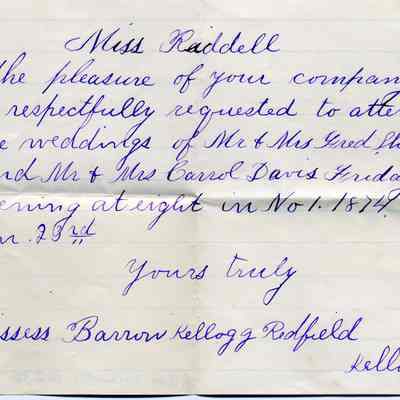 Miss Raddell
The pleasure of your compan
respectfully requested to atte
e weddings of Mr & Mrs Fred
nd Mr & Mrs Carrol Davis Frida
ening at eight in No 1. 1874.
23rd
Yours truly
issess Barron Kellogg Redfield
Kell